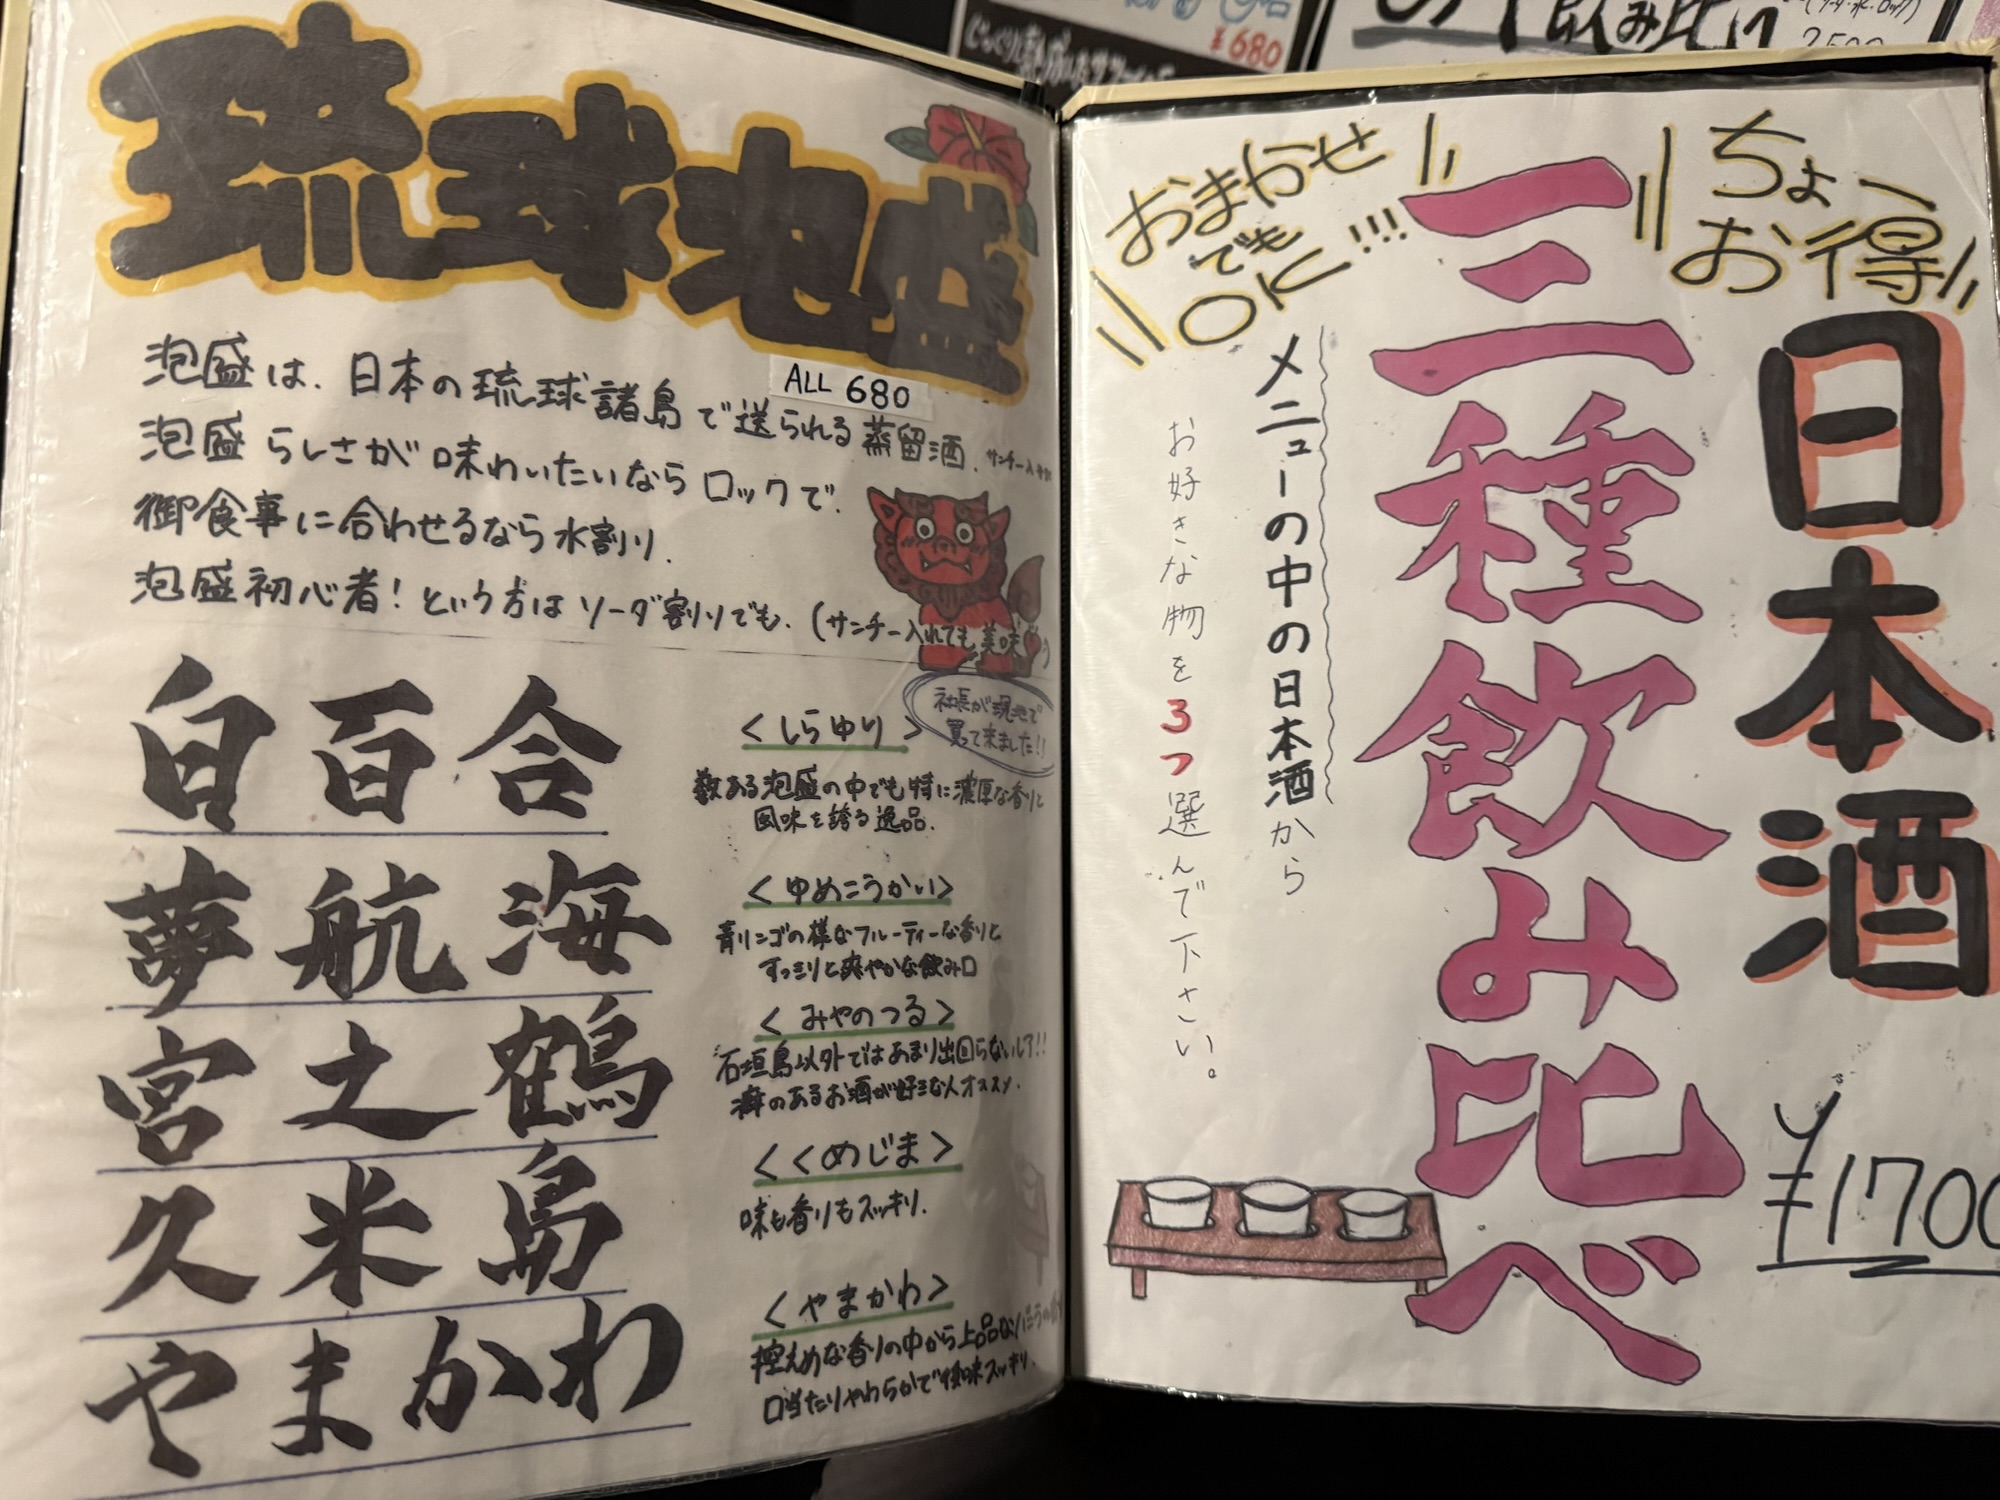 琉球泡盛
ALL 680
泡盛は、日本の琉球諸島で送られる蒸留酒、
泡盛らしさが味わいたいならロックで、
御食事に合わせるなら水割り、
泡盛初心者!という方はソーダ割りでも、(サンチー入れても美味
社長が現地で
買って来ました!!
白百合
<しらゆり>
数ある泡盛の中でも特に濃厚な香りと
風味を誇る逸品.
夢航海
<ゆめこうかい>
青リンゴの様なフルーティーな香りと
すっきりと爽やかな飲み口
宮之鶴
<みやのつる>
石垣島以外ではあまり出回らないレア!!
癖のあるお酒が好きな人オススメ.
久米島
<くめじま>
味も香りもスッキリ.
やまかわ
<やまかわ>
控えめな香りの中から上品な
口当たりやわらかで後味スッキリ.
ちょーお得
日本酒
三種飲み比べ
¥1700
おまかせ
でも
OK!!!
メニューの中の日本酒から
お好きな物を3つ選んで下さい。
¥680
飲み比べ